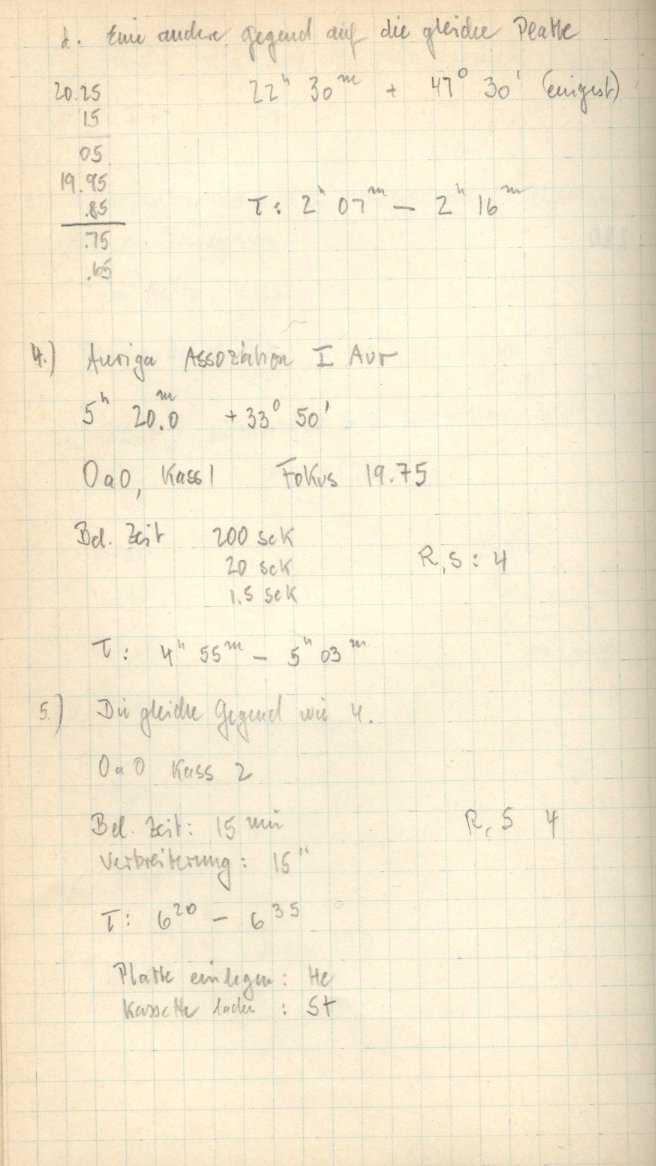 d. Eine andere Gegend auf die gleiche Platte
20.25 22ʰ 30ᵐ + 47° 30' (eingest)
15
05
19.95
.85 T: 2ʰ 07ᵐ — 2ʰ 16ᵐ
.75
.65
4.) Auriga Assoziation I Aur
5ʰ 20ᵐ.0 +33° 50'
OaO, Kass 1 Fokus 19.75
Bel. Zeit 200 sek
20 sek R, S: 4
1.5 sek
T: 4ʰ 55ᵐ — 5ʰ 03ᵐ
5.) Die gleiche Gegend wie 4.
OaO Kass 2
Bel. Zeit: 15 min R, S 4
Verbreiterung: 15"
T: 6²⁰ — 6³⁵
Platte einlegen: He
Kassette laden : St